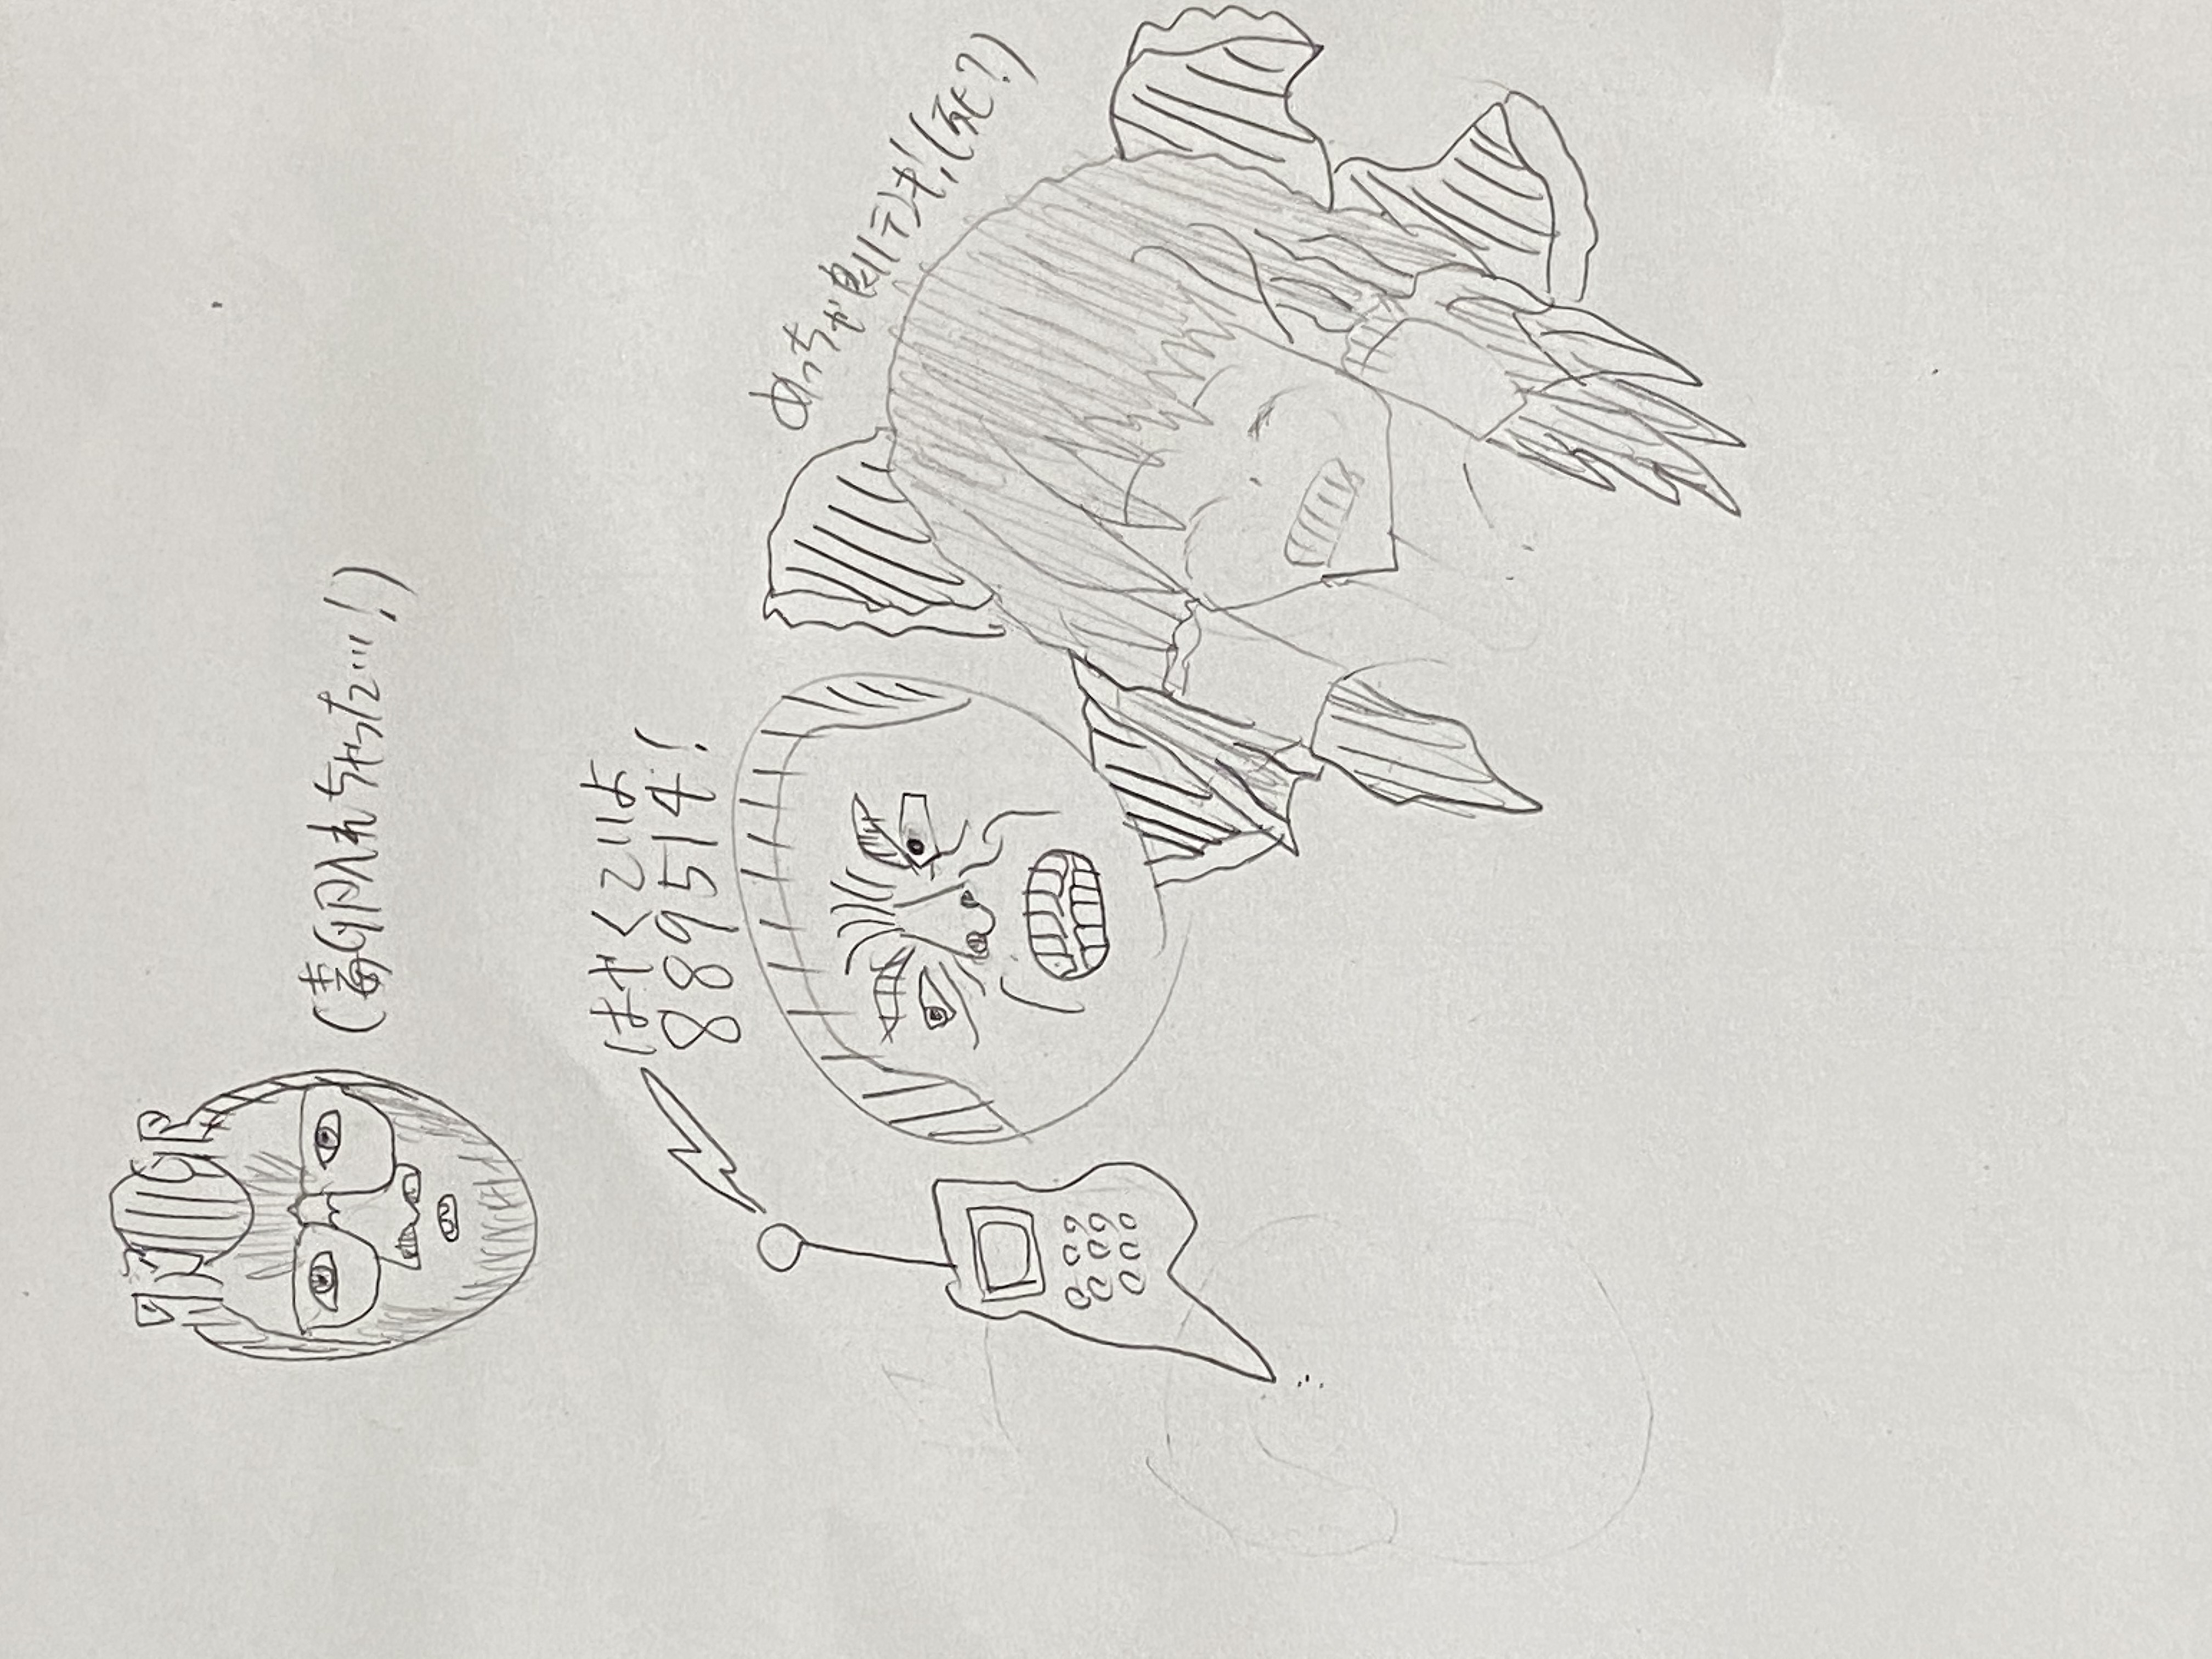 (毒卵入れちゃった…!)
はやくこいよ
889514!
めっちゃ良いテンポ!(死?)